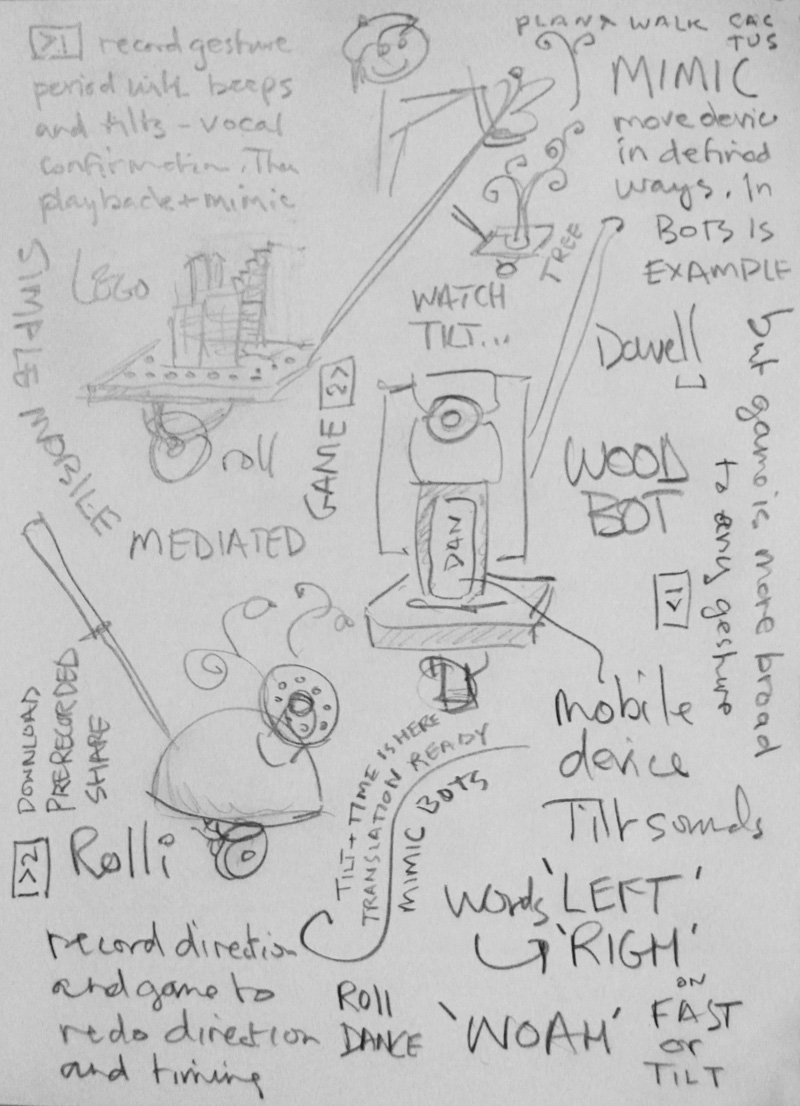 >1 record gesture
period with beeps
and tilts - vocal
confirmation. Then
playback + mimic
PLANT WALK CAC
TUS
MIMIC
move device
in defined
ways. In
BOTS IS
EXAMPLE
TREE
LEGO
SIMPLE MOBILE
roll
MEDIATED
WATCH
TILT...
GAME 2>
Dowell
WOOD
BOT
but game is more broad
to any gesture
<1
DAN
mobile
device
Tilt sounds
words 'LEFT'
'RIGH'
'WOAH' ON
FAST
or
TILT
DOWNLOAD
PRERECORDED
SHARE
>2 Rolli
TILT + TIME IS HERE
TRANSLATION READY
MIMIC BOTS
record direction
and game to
redo direction
and timing
ROLL
DANCE